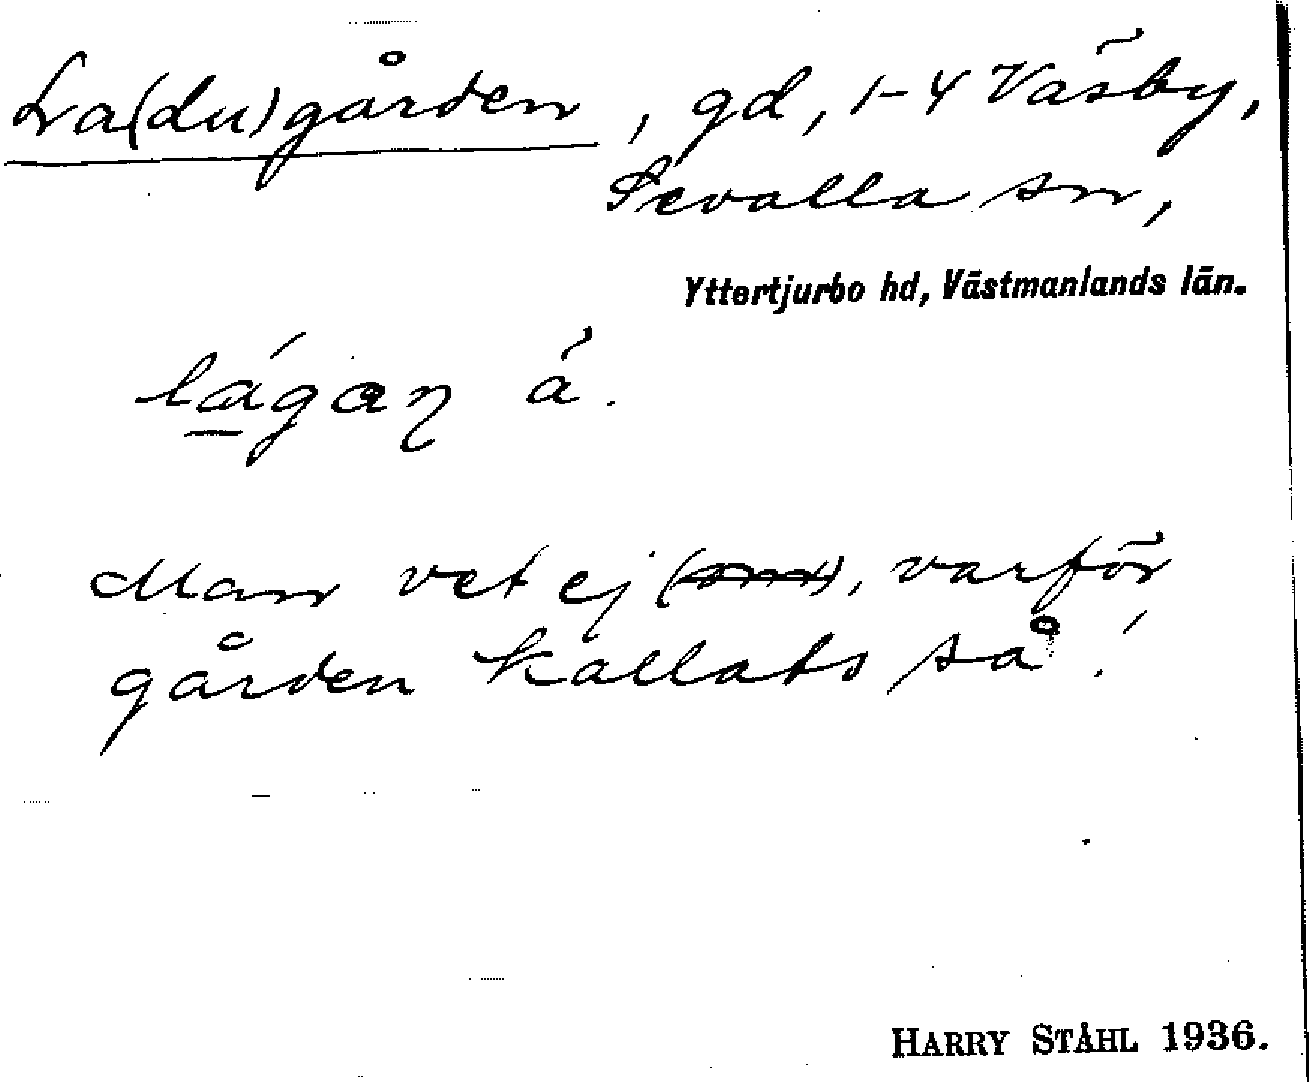 La(du)gården, gd, 1-4 Väsby,
Sevalla sn,
Yttertjurbo hd, Västmanlands län.
lágaη ä.
Man vet ej, varför
gården kallats så!
HARRY STÅHL 1936.